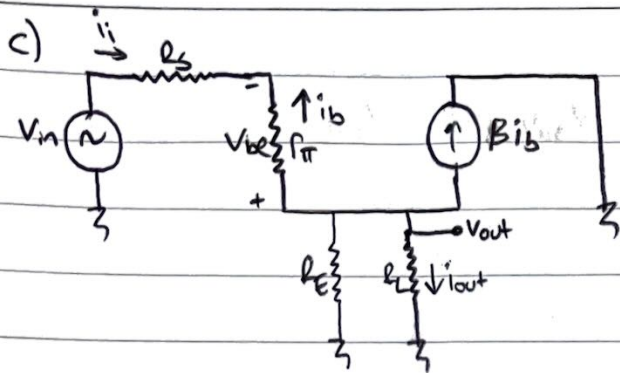 c)
ii
Rs
-
↑ ib
Vin
~
Vbe
rπ
↑
Bib
+
Vout
RE
RL
↓ iout